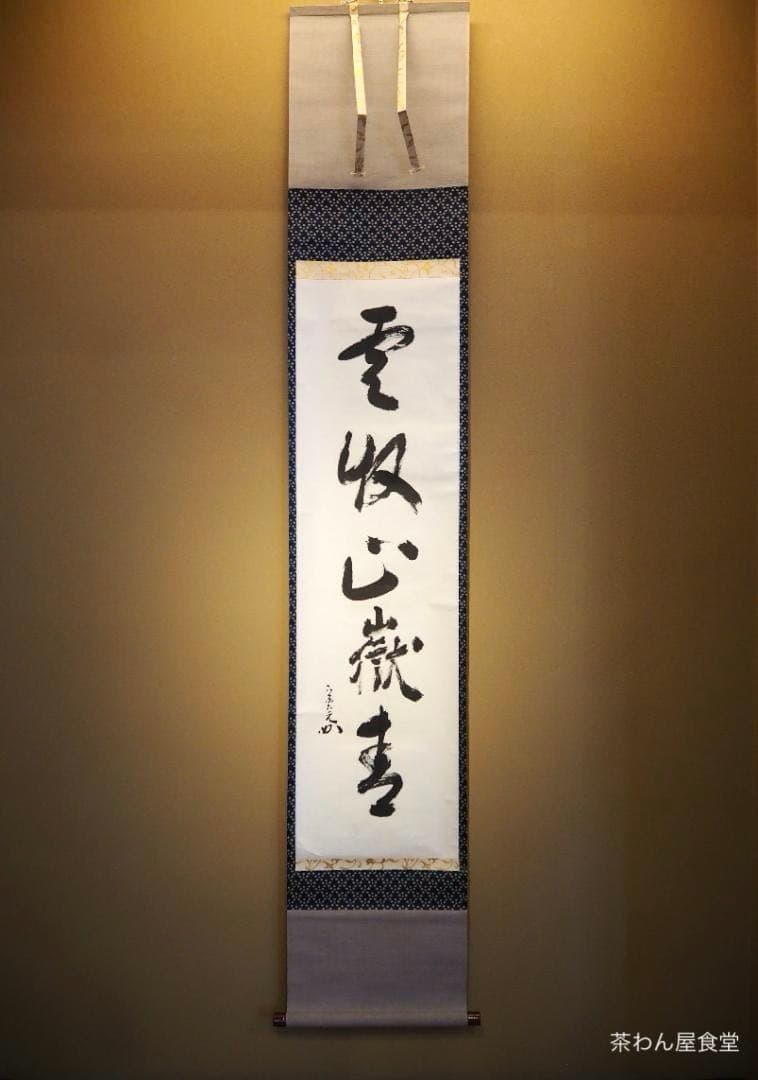 雲收山嶽青
茶わん屋食堂